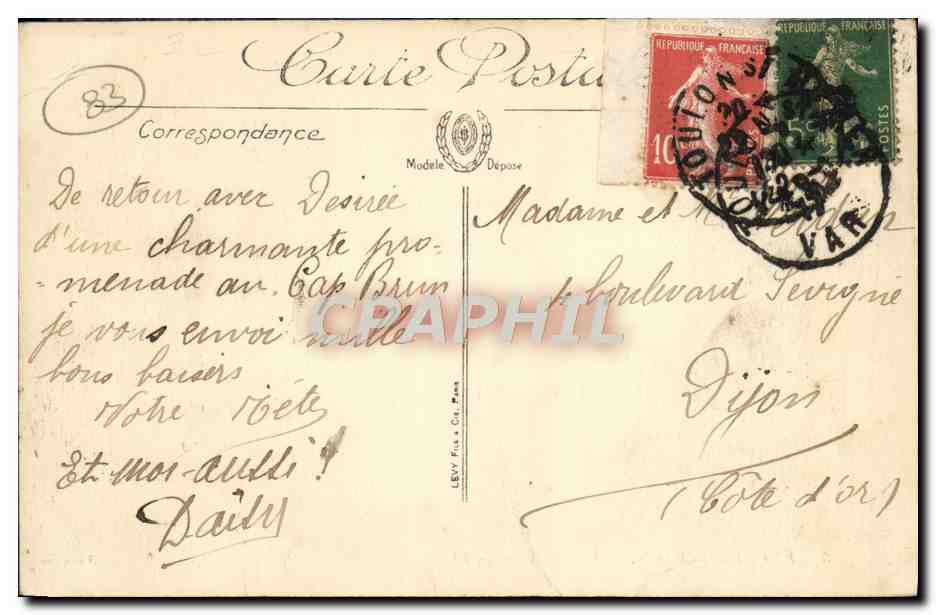 Carte Posta
83
Correspondance
Modèle Déposé
REPUBLIQUE FRANÇAISE
10
REPUBLIQUE FRANÇAISE
5c
POSTES
TOULON
VAR
De retour avec Désirée
d'une charmante pro-
-menade au Cap Brun
je vous envoi mille
bons baisers
Votre
Et moi-aussi !
Daisy
CPAPHIL
LEVY FILS & Cie, Paris
Madame et M
4 boulevard Sévigné
Dijon
(Côte d'or)